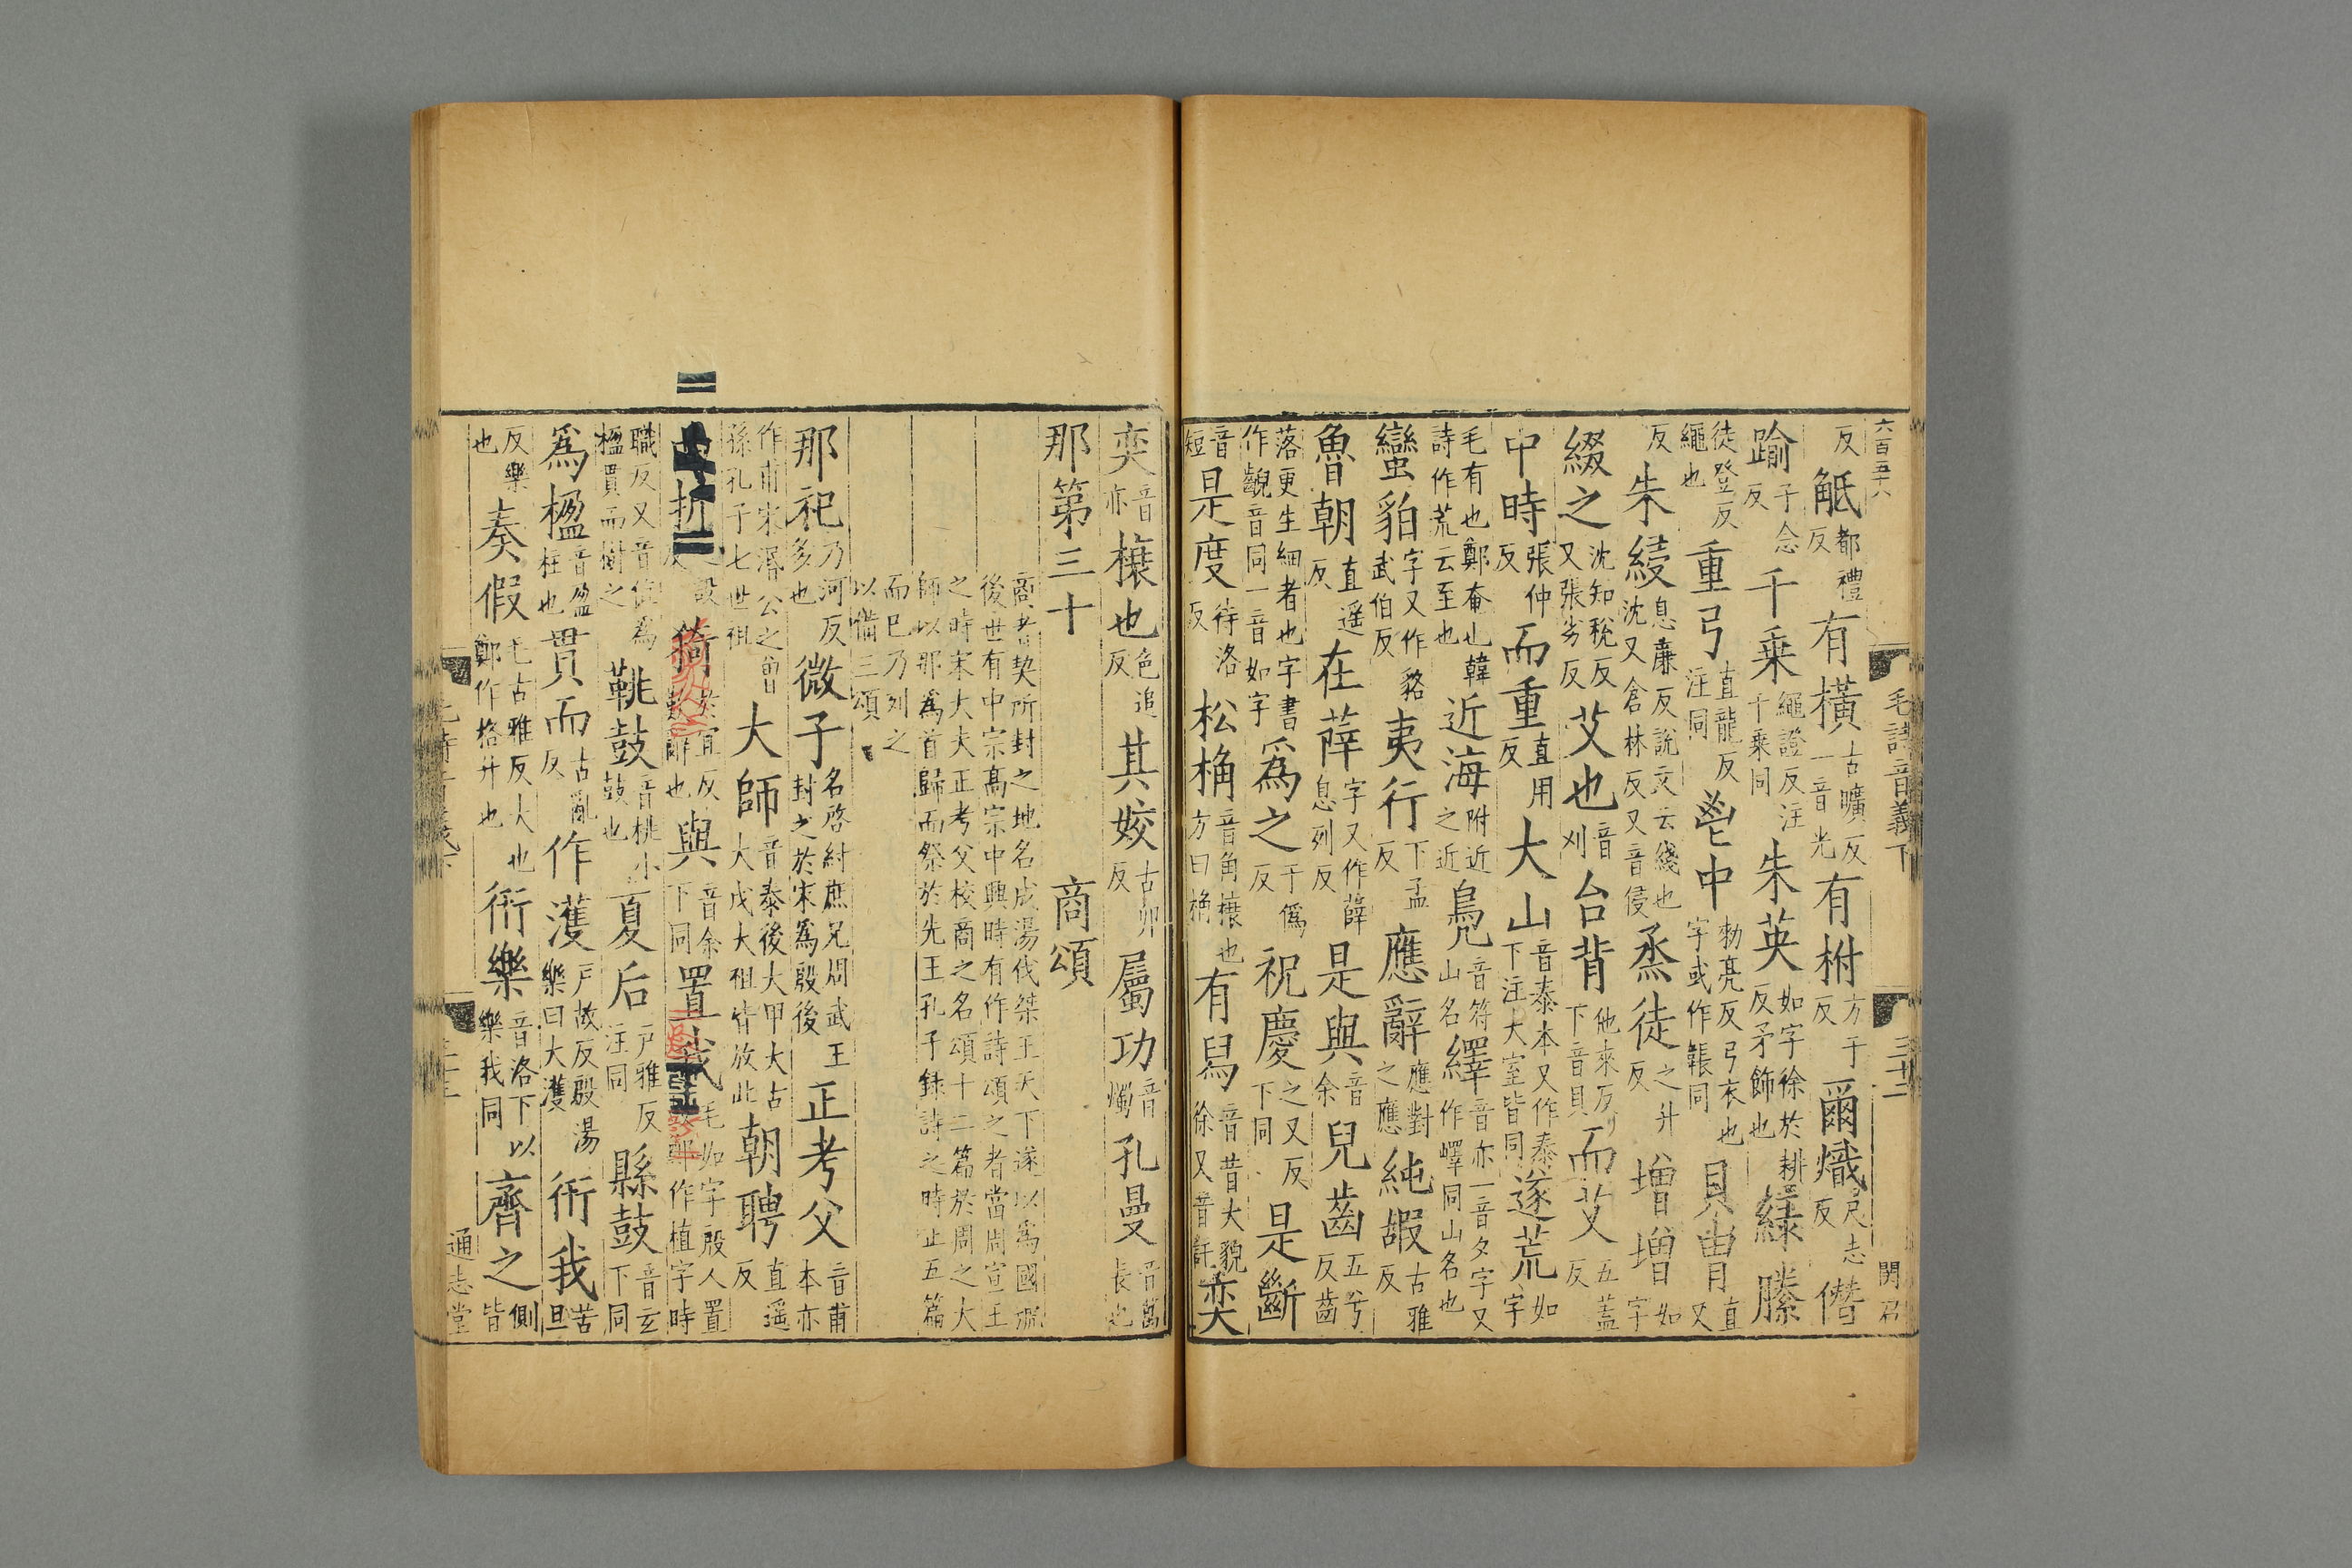 六百五十八
毛詩音義下 三十二
反觝都禮反有橫古曠反一音光有柎方于反爾熾尺志反僭
踰子念反千乗繩證反注千乗同朱英如字徐於耕反矛飾也綠縢
徒登反繩也重弓直龍反注同鬯中勑亮反弓衣也字或作韔同貝冑直又
反朱綅息廉反說文云綫也沈又倉林反又音侵烝徒之升反增增如字
綴之沈知稅反又張劣反艾也音刈台背他來反下音貝而艾五蓋反
中時張仲反而重直用反大山音泰本又作泰下注大室皆同遂荒如字
毛有也鄭奄也韓詩作荒云至也近海附近之近鳧音符山名繹音亦一音夕字又作嶧同山名也
蠻貊字又作貉武伯反夷行下孟反應辭應對之應純嘏古雅反
魯朝直遥反在薛字又作薛息列反是與音余兒齒五兮反齒
落更生細者也字書作齯音同一音如字爲之于僞反祝慶之又反下同是斷
音短是度待洛反松桷音角榱也方曰桷有舄音昔大貌徐又音託奕
奕音亦榱也色追反其姣古卯反屬功音燭孔曼音萬長也
那第三十 商頌
商者契所封之地名成湯伐桀王天下遂以爲國號
後世有中宗高宗中興時有作詩頌之者當周宣王
之時宋大夫正考父校商之名頌十二篇於周之大
師以那爲首歸而祭於先王孔子錄詩之時止五篇
而已乃列之以備三頌
那祀乃河反多也微子名啓紂庶兄周武王封之於宋爲殷後正考父音甫本亦
作甫宋湣公之曾孫孔子七世祖大師音泰後大甲大古大戊大祖皆放此朝聘直遥反
猗於宜反與音余下同置毛如字殷人置鄭作植字時
職反又音值爲楹貫而樹之鞉鼓音桃小鼓也夏后戸雅反注同縣鼓音玄下同
爲楹音盈柱也貫而古亂反作濩戸故反殷湯樂曰大濩衎我苦旦
反樂也奏假毛古雅反大也鄭作格升也衎樂音洛下以樂我同齊之側皆
通志堂